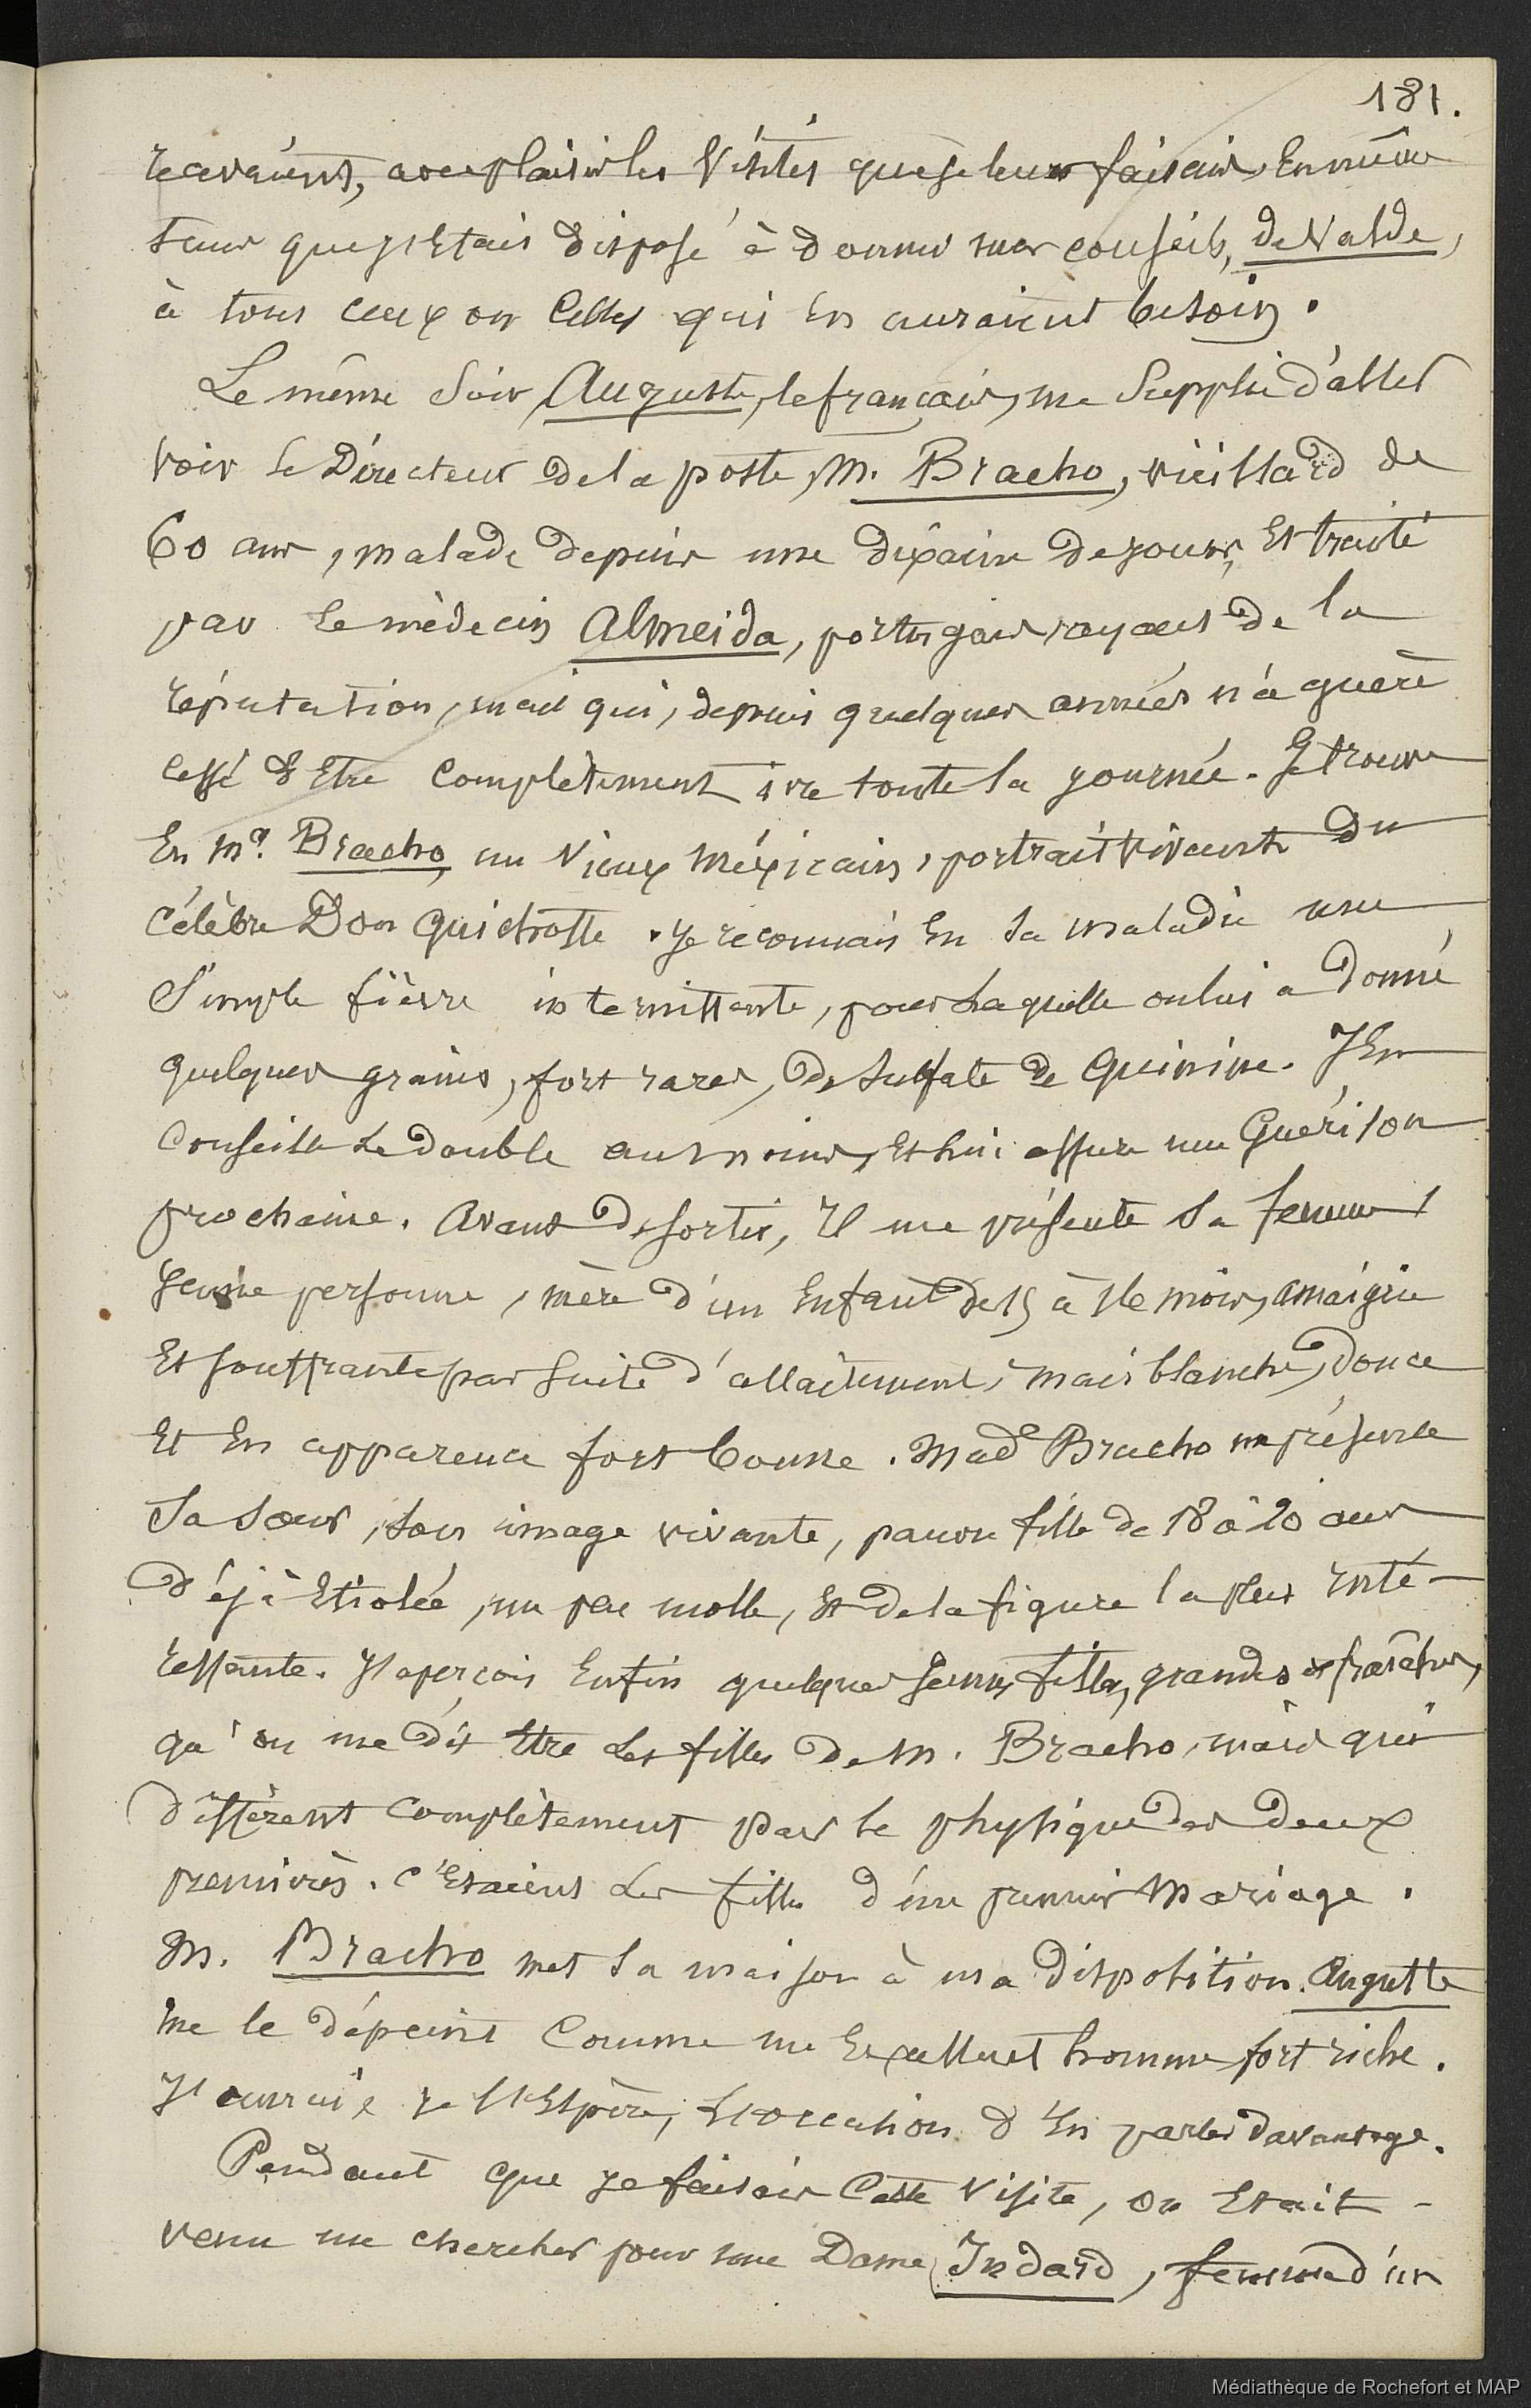 181.
recevaient, avec plaisir les Visites que je leur faisais, En même
temps que j'Etais disposé à donner mes conseils, de Valde,
à tous ceux ou Celles qui En auraient besoin.
Le même soir, Auguste, le français, me Supplie d'aller
voir le Directeur de la poste, M. Bracho, vieillard de
60 ans, malade depuis une dixaine de jours, Et traité
par le mèdecin Almeida, portugais, ayant de la
réputation, mais qui, depuis quelques années n'a guère
cessé d'Etre complètement ivre toute la journée. Je trouve
En Mr. Bracho, un Vieux Méxicain, portrait vivant du
célèbre Don Quichotte. Je reconnais En sa maladie une
simple fièvre intermittente, pour Laquelle on lui a donné
quelques grains, fort rares, de sulfate de Quinine. J'En
conseille Le double au moins, Et lui assure une Guérison
prochaine. Avant de sortir, Il me présente sa femme,
jeune personne, mère d'un Enfant de 15 à 16 mois, amaigrie
Et souffrante par suite d'allaitement, mais blanche, douce
Et En apparence fort bonne. Made Bracho me présente
sa soeur, son image vivante, pauvre fille de 18 à 20 ans
déjà Etiolée, un peu molle, Et de la figure la plus inté-
ressante. J'aperçois Enfin quelques jeunes filles, grandes et fraîches,
qu'on me dit Etre Les filles de M. Bracho, mais qui
diffèrent complètement par le physique des deux
premières. C'Etaient Les filles d'un premier Mariage.
M. Bracho met sa maison à ma disposition. Auguste
me le dépeint comme un Excellent homme, fort riche.
J'aurai, je l'Espère, L'occasion d'En parler davantage.
Pendant que je faisais Cette Visite, on Etait
venu me chercher pour une Dame Indard, femme d'un
Médiathèque de Rochefort et MAP